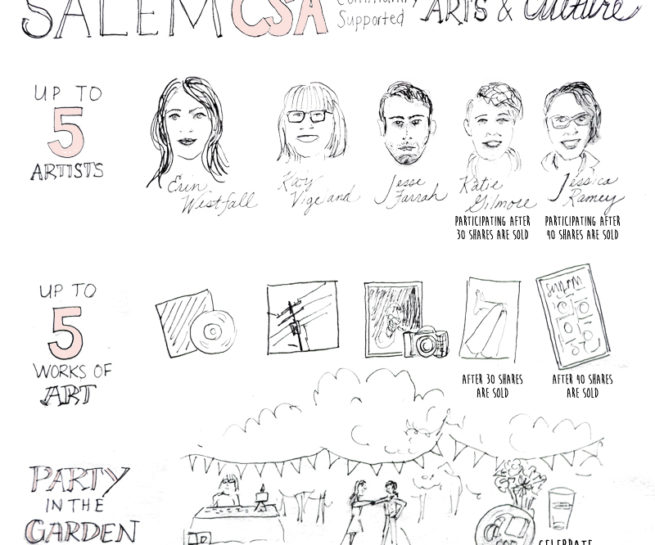 SALEM CSA Community Supported ARTS & Culture
UP TO
5
ARTISTS
Erin Westfall
Kay Vigeland
Jesse Farrah
Katie Gilmore
PARTICIPATING AFTER
30 SHARES ARE SOLD
Jessica Ramey
PARTICIPATING AFTER
40 SHARES ARE SOLD
UP TO
5
WORKS OF
ART
AFTER 30 SHARES
ARE SOLD
AFTER 40 SHARES
ARE SOLD
PARTY
IN THE
GARDEN
CELEBRATE